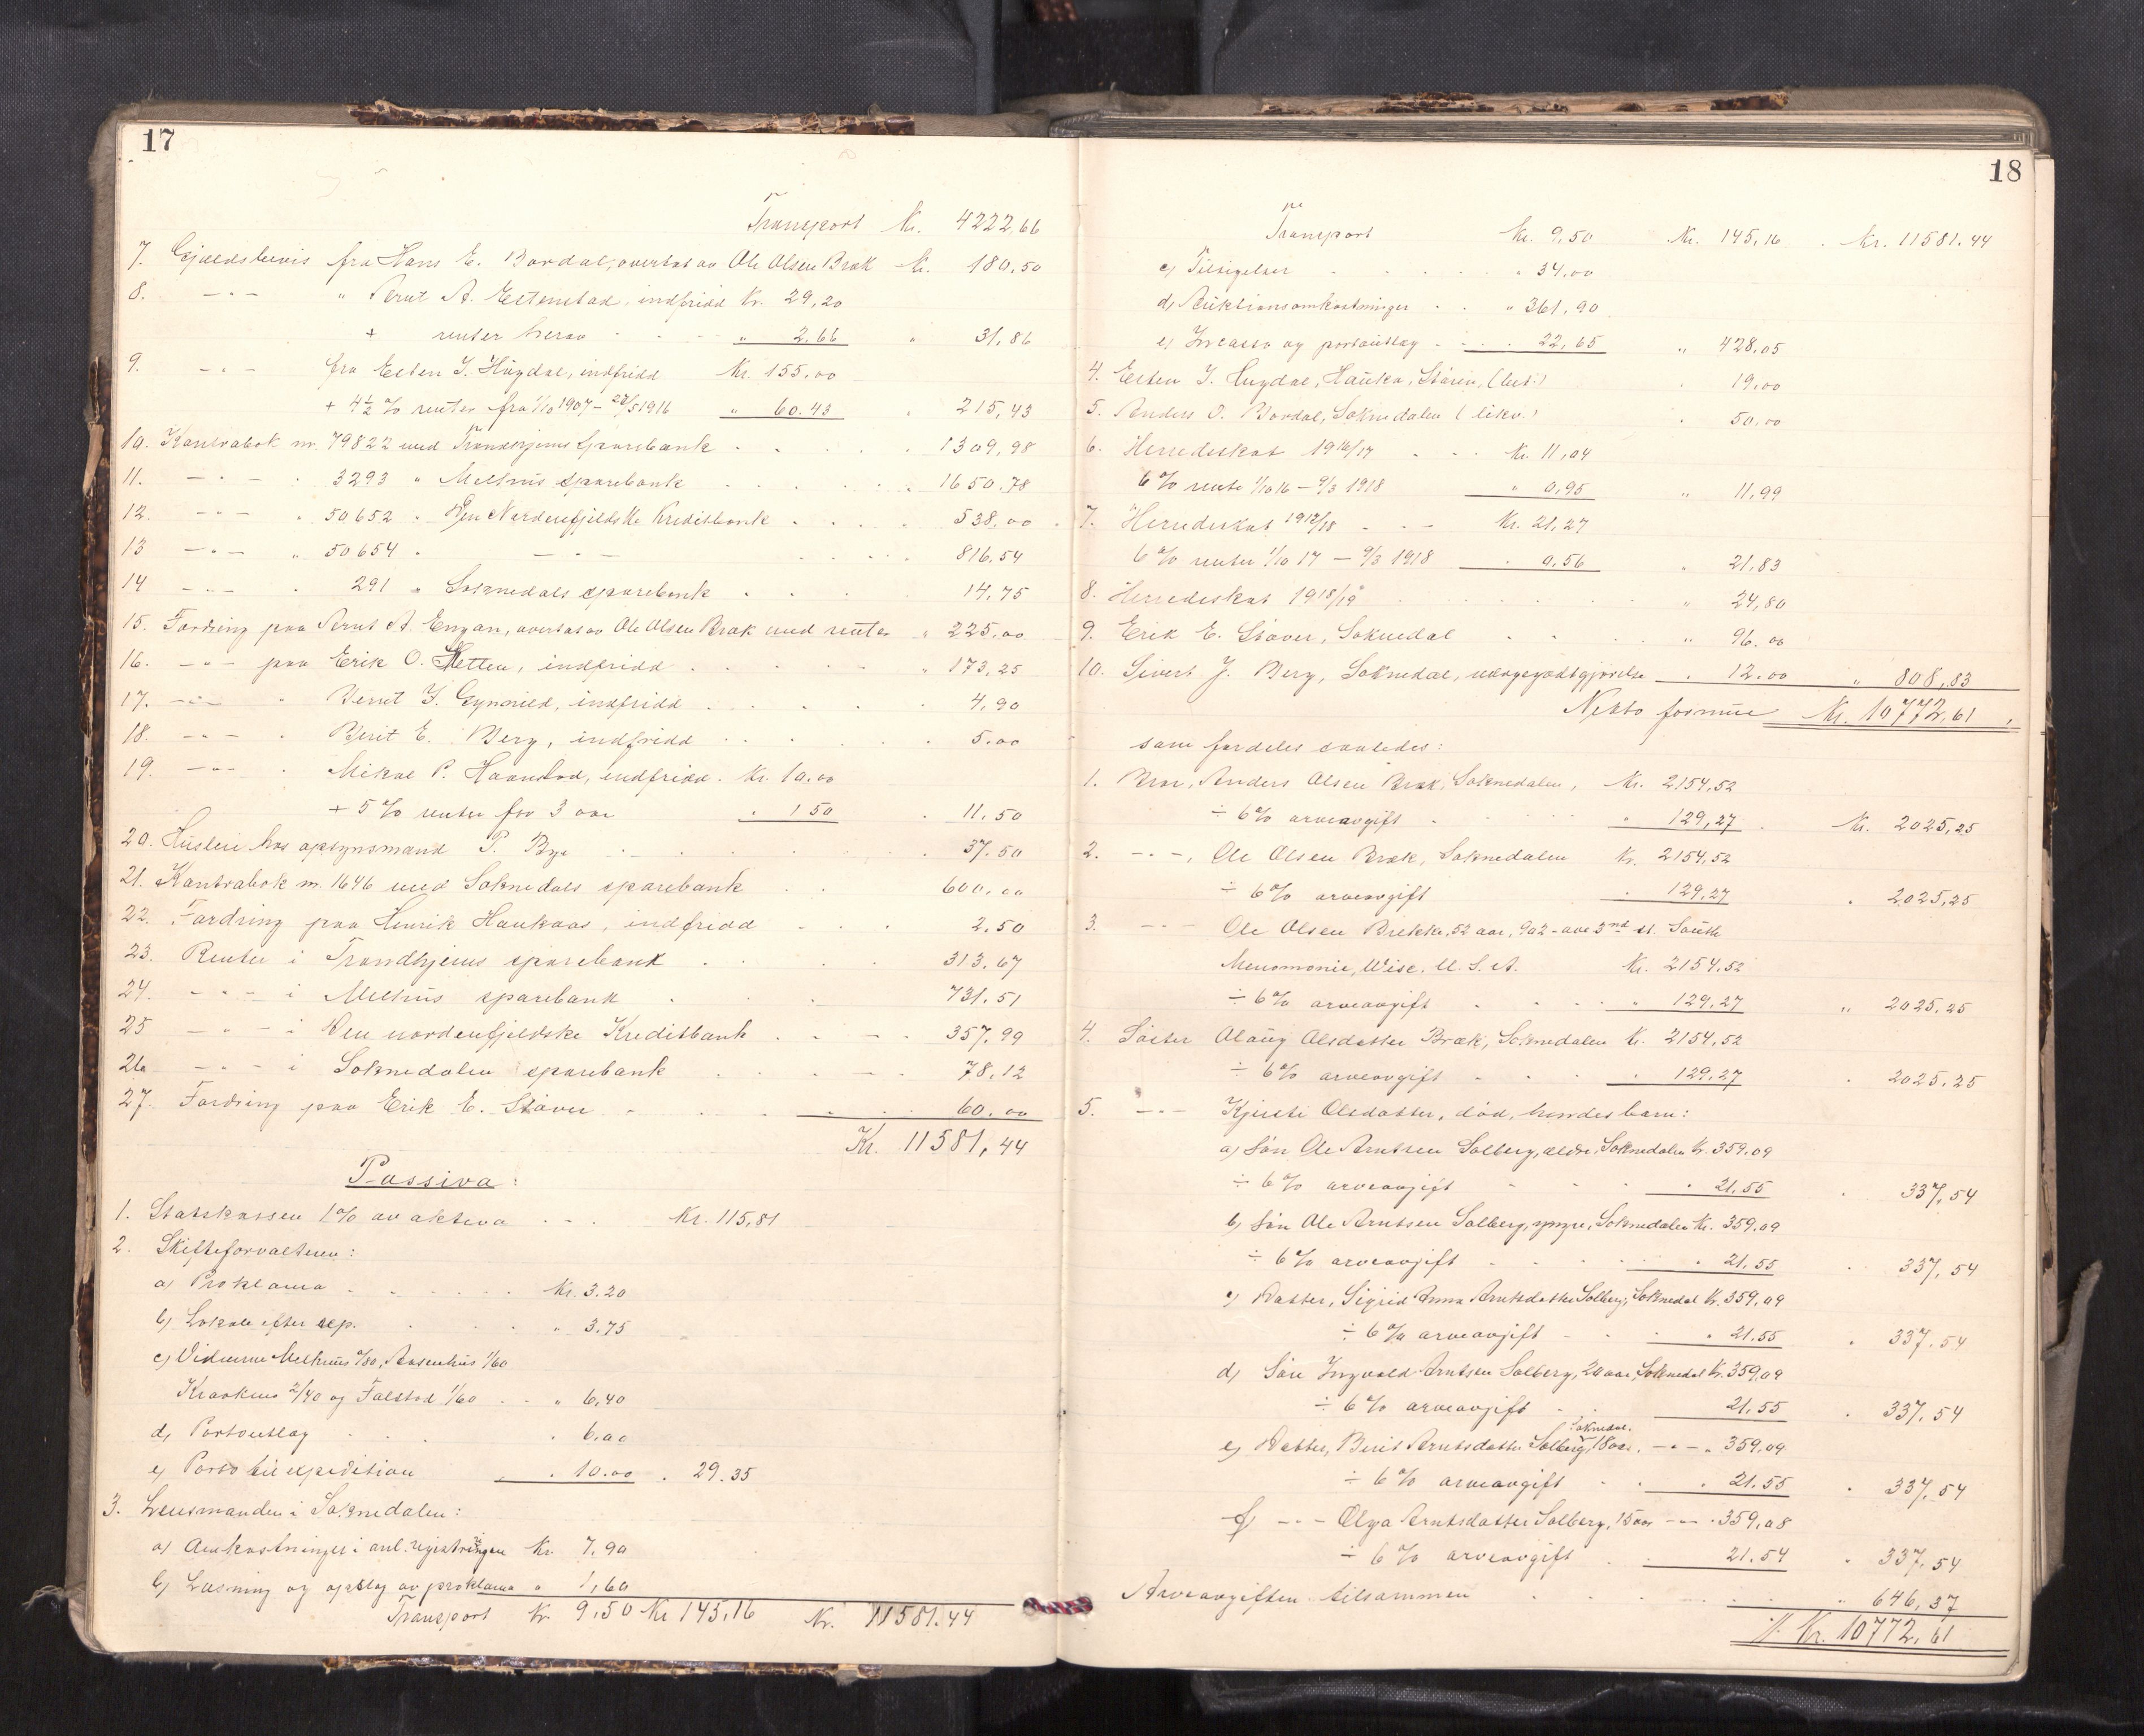 17
Transport Kr. 4222,66
7. Gjældsbevis fra Hans E. Bordal, overtat av Ole Olsen Bræk Kr. 180,50
8. -"- " Arnt A. Estenstad, indfridd Kr. 29,20
+ renter herav " 2.66 " 31,86
9. -"- fra Esten J. Hugdal, indfridd Kr. 155,00
+ 4½ % renter fra 1/10 1907 - 28/5 1916 " 60.43 " 215,43
10. Kontrabok nr. 79822 med Trondhjems Sparebank 1309,98
11. -"- " 3293 " Melhus sparebank 1650.78
12. -"- " 50652 " Den Nordenfjeldske Kreditbank 538.00
13 -"- " 50654 " -"- 816.54
14 -"- " 291 " Soknedals sparebank 14.75
15. Fordring paa Arnt A. Engan, overtat av Ole Olsen Bræk med renter " 225.00
16. -"- paa Erik O. Hetten, indfridd " 173,25
17. -"- " Bernt J. Gynnild, indfridd 4,90
18. -"- " Berit E. Berg, indfridd 5.00
19. -"- " Mikal P. Haanstad, indfridd. Kr. 10.00
+ 5 % renter for 3 aar " 1 50 " 11.50
20. Husleie hos opsynsmand P. Bye 37.50
21. Kontrabok nr. 1646 med Soknedals sparebank 600.00
22. Fordring paa Henrik Haukaas, indfridd 2.50
23. Renter i Trondhjems sparebank 313.67
24. -"- i Melhus sparebank 731.51
25 -"- i Den nordenfjeldske Kreditbank 357,99
26 -"- i Soknedalen sparebank 78.12
27. Fordring paa Erik E. Støver 60.00
Kr. 11581,44
Passiva:
1. Statskassen 1% av aktiva Kr. 115,81
2. Skifteforvalteren:
a) Proklama Kr. 3.20
b) Lokale efter rep. " 3.75
c) Melhus
og Falstad 1/60 " 6,40
d) Portoutlæg " 6.00
e) Porto til expedition " 10.00 " 29.35
3. Lensmanden i Soknedalen:
a) Omkostninger i anl. registreringen Kr. 7.90
b) Læsning og opslag av proklama " 1,60
Transport Kr. 9,50 Kr 145,16 Kr. 11581.44
18
Transport Kr. 9,50 Kr. 145,16 Kr. 11581.44
c) Tilsigelser " 34,00
d) Auktionsomkostninger " 361,90
e) Incasso og portoutlæg 22,65 " 428,05
4. Esten J. Hugdal, Hauka, Støren, 19,00
5. Anders O. Bordal, Soknedalen 50,00
6. Herredeskat 1916/17 Kr. 11,04
6 % rente 1/10 16 - 9/3 1918 " 0,95 " 11,99
7. Herredeskat 1917/18 Kr. 21,27
6 % renter 1/10 17 - 9/3 1918 0,56 " 21,83
8. Herredeskat 1918/19 " 24,80
9. Erik E. Støver, Soknedal " 96.00
10. Sivert J. Berg, Soknedal, værgegodtgjørelse " 12.00 " 808,83
Netto formue Kr. 10772,61
som fordeles saaledes:
1. Bror, Anders Olsen Bræk, Soknedalen, Kr. 2154,52
÷ 6% arveavgift " 129,27 Kr. 2025,25
2. -"-, Ole Olsen Bræk, Soknedalen Kr. 2154,52
÷ 6% arveavgift " 129,27 " 2025,25
3. -"- Ole Olsen Brekke, 52 aar, 902 - ave 3nd st. South
Menomonie, Wisc. U.S.A. Kr. 2154,52
÷ 6% arveavgift " 129,27 " 2025,25
4. Søster Olaug Olsdatter Bræk, Soknedalen Kr. 2154,52
÷ 6% arveavgift " 129,27 " 2025,25
5. -"- Kjersti Olsdatter, død, hendes barn:
a) Søn Ole Arntsen Solberg, ældre, Soknedalen Kr. 359,09
÷ 6% arveavgift " 21,55 " 337,54
b) Søn Ole Arntsen Solberg, yngre, Soknedalen Kr. 359,09
÷ 6% arveavgift " 21,55 " 337,54
c) Datter, Sigrid Anna Arntsdatter Solberg, Soknedal Kr. 359,09
÷ 6% arveavgift " 21,55 " 337,54
d) Søn Ingvald Arntsen Solberg, 20 aar, Soknedal Kr. 359,09
÷ 6% arveavgift 21,55 " 337,54
Soknedal.
e) Datter, Berit Arntsdatter Solberg, 18 aar, -"- " 359,09
÷ 6% arveavgift " 21,55 " 337,54
f) -"- Olga Arntsdatter Solberg, 15 aar -"- " 359,08
÷ 6% arveavgift 21,54 " 337,54
Arveavgiften tilsammen " 646,37
Kr. 10772,61